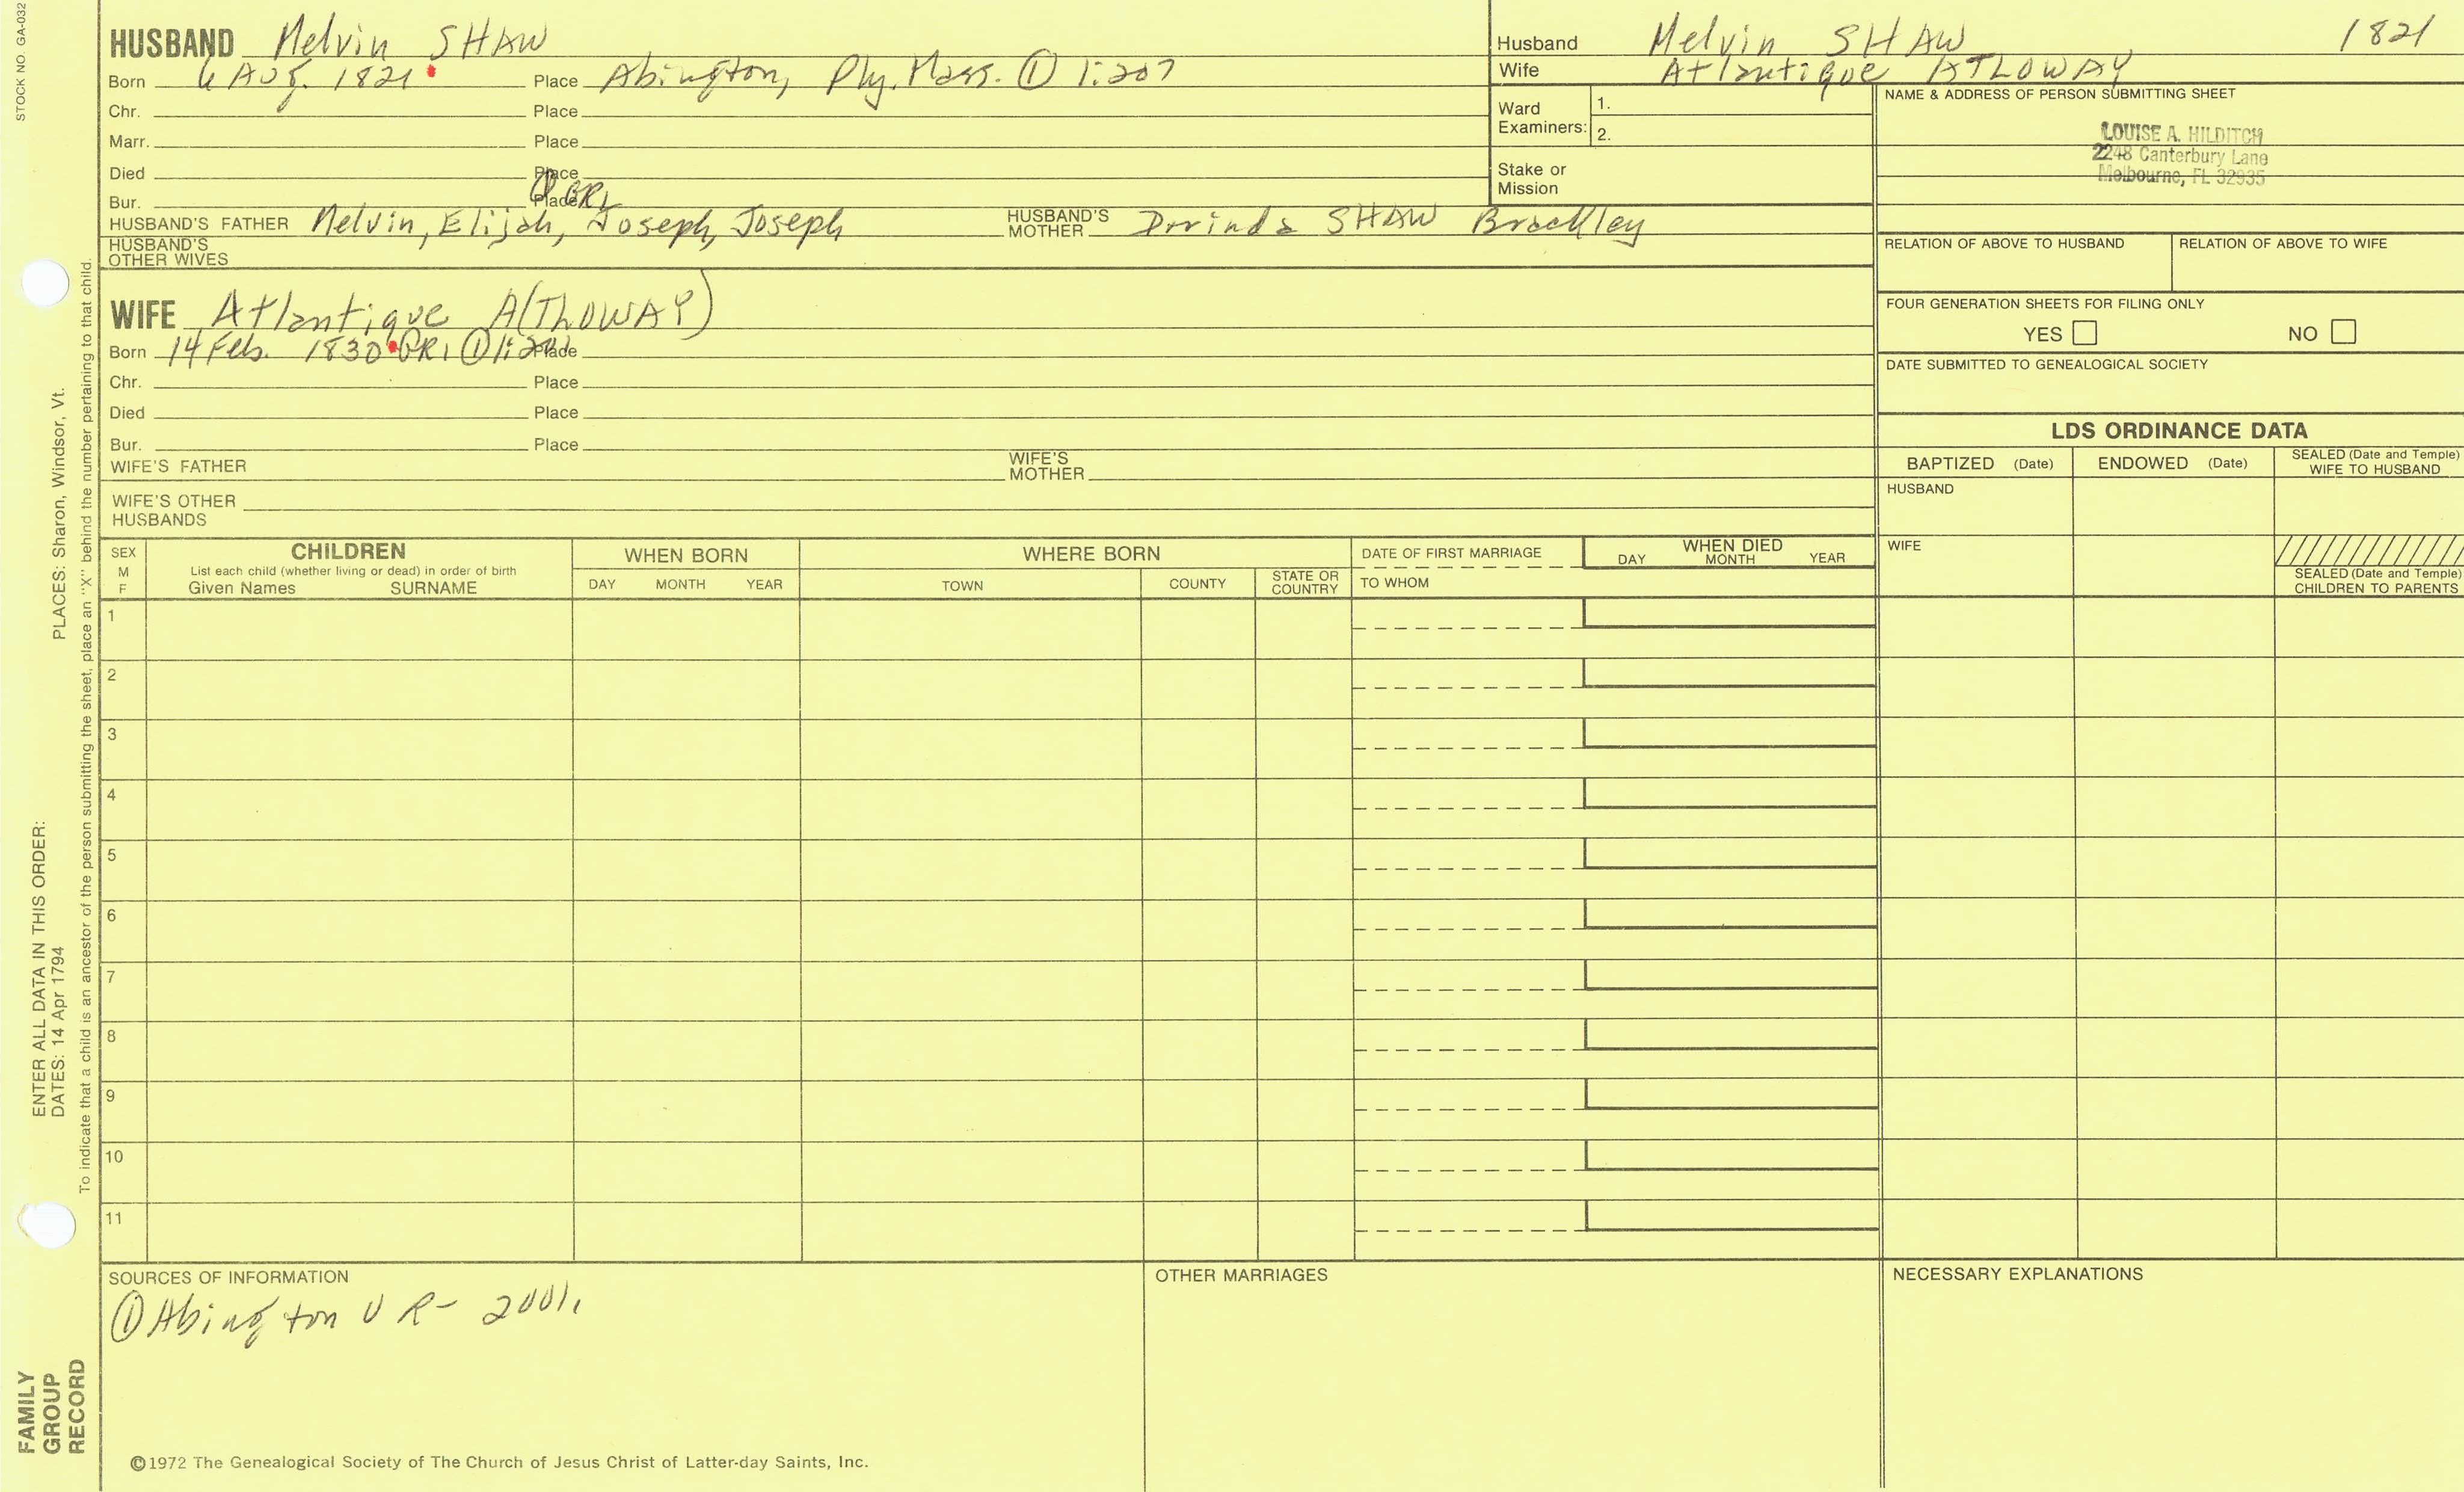 STOCK NO. GA-032
HUSBAND Melvin SHAW
Born 6 AUg. 1821 Place Abington, Ply. Mass. ① 1:207
Chr. Place
Marr. Place
Died Place
Bur. Place
HUSBAND'S FATHER Melvin, Elijah, Joseph, Joseph HUSBAND'S MOTHER Dorinda SHAW Brackley
HUSBAND'S OTHER WIVES
Husband Melvin SHAW 1821
Wife Atlantique ATLOWAY
Ward Examiners: 1.
2.
Stake or Mission
NAME & ADDRESS OF PERSON SUBMITTING SHEET
LOUISE A. HILDITCH
2248 Canterbury Lane
Melbourne, FL 32935
RELATION OF ABOVE TO HUSBAND RELATION OF ABOVE TO WIFE
FOUR GENERATION SHEETS FOR FILING ONLY
YES NO
DATE SUBMITTED TO GENEALOGICAL SOCIETY
WIFE Atlantique A(ThOWAY)
Born 14 Feb. 1830 GR1 ① Place
Chr. Place
Died Place
Bur. Place
WIFE'S FATHER WIFE'S MOTHER
WIFE'S OTHER HUSBANDS
LDS ORDINANCE DATA
BAPTIZED (Date) ENDOWED (Date) SEALED (Date and Temple) WIFE TO HUSBAND
HUSBAND
WIFE
SEALED (Date and Temple) CHILDREN TO PARENTS
SEX M F
CHILDREN
List each child (whether living or dead) in order of birth
Given Names SURNAME
WHEN BORN
DAY MONTH YEAR
WHERE BORN
TOWN COUNTY STATE OR COUNTRY
DATE OF FIRST MARRIAGE
TO WHOM
WHEN DIED
DAY MONTH YEAR
1
2
3
4
5
6
7
8
9
10
11
SOURCES OF INFORMATION
① Abington V R- 2001.
OTHER MARRIAGES
NECESSARY EXPLANATIONS
©1972 The Genealogical Society of The Church of Jesus Christ of Latter-day Saints, Inc.
FAMILY GROUP RECORD
ENTER ALL DATA IN THIS ORDER:
DATES: 14 Apr 1794 PLACES: Sharon, Windsor, Vt.
To indicate that a child is an ancestor of the person submitting the sheet, place an "X" behind the number pertaining to that child.